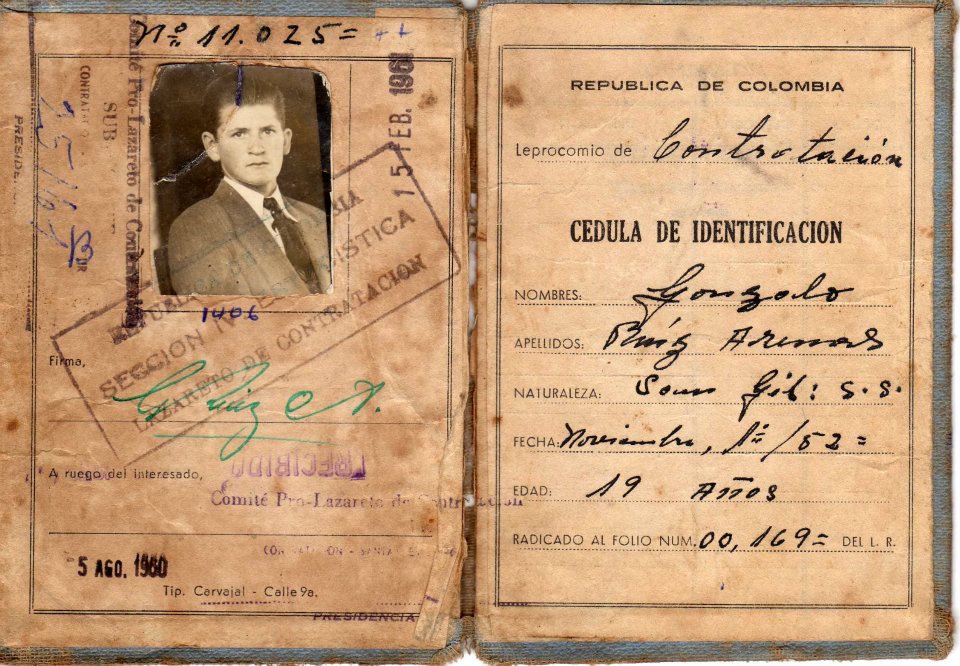 Nº 11.025=
15 FEB. 1961
CONTRATACION
PRESIDEN
SUB
Comité Pro-Lazareto de Contratación
1406
REPUBLICA DE COLOMBIA
SECCION
LAZARETO DE CONTRATACION
Firma,
G. Ruiz A.
A ruego del interesado,
RECIBIDO
Comité Pro-Lazareto de Contratación
5 AGO. 1960
Tip. Carvajal - Calle 9a.
PRESIDENCIA
REPUBLICA DE COLOMBIA
Leprocomio de Contratación
CEDULA DE IDENTIFICACION
NOMBRES: Gonzalo
APELLIDOS: Ruiz Arenas
NATURALEZA: San Gil: S.S.
FECHA: Noviembre, 1º/52=
EDAD: 19 Años
RADICADO AL FOLIO NUM. 00,169= DEL L. R.